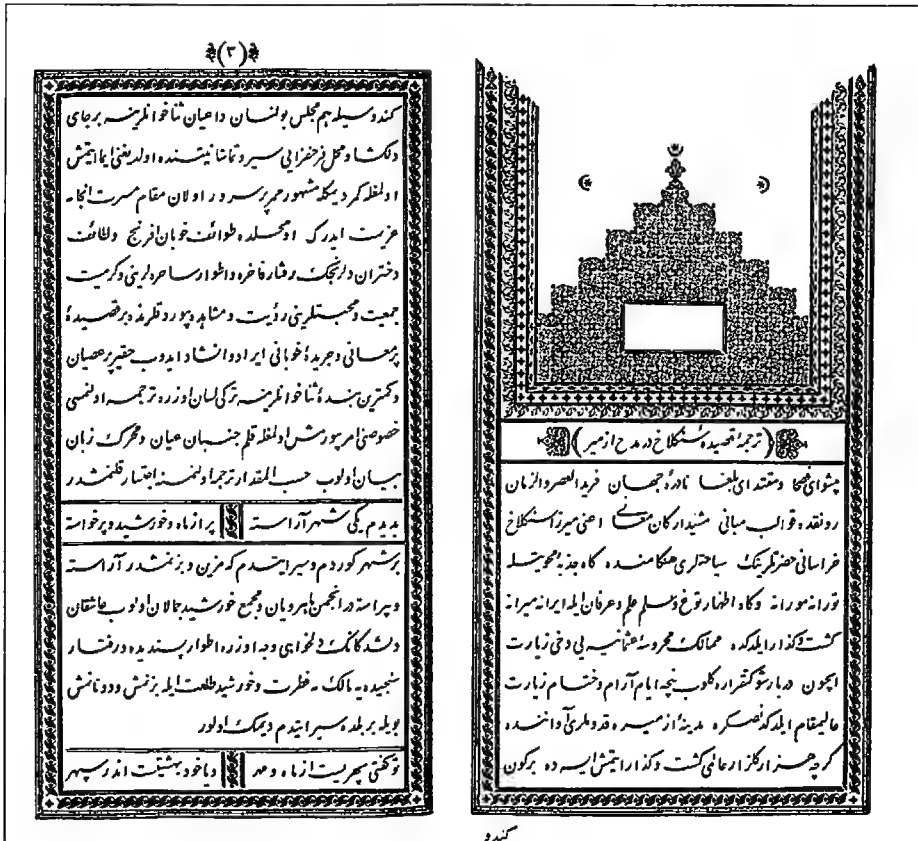 (ترجمهٔ قصیدهٔ سنکلاخ در مدح ازمیر)
پیشوای فصحا و مقتدای بلغا نادرهٔ جهان فرید العصر والزمان
رونقده قوالب مبانی مشید ارکان معانی اعنی میرزا سنکلاخ
خراسانی حضرتلرینک سیاحتلری هنکامنده کاه جذبه محویتله
تورانه مورانه وکاه اظهار توغ وسلم علم وعرفان ایله ایرانه میرانه
کشت وکذار ایلدکده ممالک محروسهٔ عثمانیه یی دخی زیارت
ایچون دربار شوکتقراره کلوب نیچه ایام آرام وختام زیارت
عالیمقام ایلدکدنصکره مدینهٔ ازمیره قدوملری آواننده
کرچه هزار کلزار عالمی کشت وکذار ایتمش ایسه ده برکون
کندو
(٣)
کندوسیله هم مجلس بولنان داعیان ثناخوانلرینه برجای
دلکشا ومحل فرحفزایی سیر وتماشا نیتنده اولدیغنی ایما ایتمش
اولمغله کمر دیمکله مشهور ممر پرسرور اولان مقام مسرت انجامه
عزیمت ایدرک اومحلده طوائف خوبان افرنج ولطائف
دختران دلرنجک رفتار فاخره واطوار ساحره لرینی وکرمیت
جمعیت ومحبتلرینی رؤیت ومشاهده بیوردقلرنده برقصیدهٔ
پرمعانی وجریدهٔ خوبانی ایراد وانشاد ایدوب حقیر پرعصیان
وکمترین بندهٔ ثناخوانلرینه ترکی لسان اوزره ترجمه اولنمسی
خصوصنی امر بیورمش اولمغله قلم جنبان عیان ومحرک زبان
بیان اولوب حسب المقدار ترجمه اولنمسنه ابتدار قلنمشدر
بدیدم یکی شهر آراسته پر از ماه وخورشید وپرخواسته
برشهر کوردم وسیر ایتدم که مزین وبزنمشدر آراسته
وپیراسته در انجمن ماهرویان ومجمع خورشید جمالان اولوب عاشقان
دلشدکانک دلخواهی وجه اوزره اطوار پسندیده ورفتار
سنجیده یه مالک مه فطرت وخورشید طلعت ایله بزنمش ودونانمش
بویله بر بلده سیر ایتدم دیمک اولور
توکفتی سپهریست از ماه ومهر ویا خود بهشتیست اندر سپهر